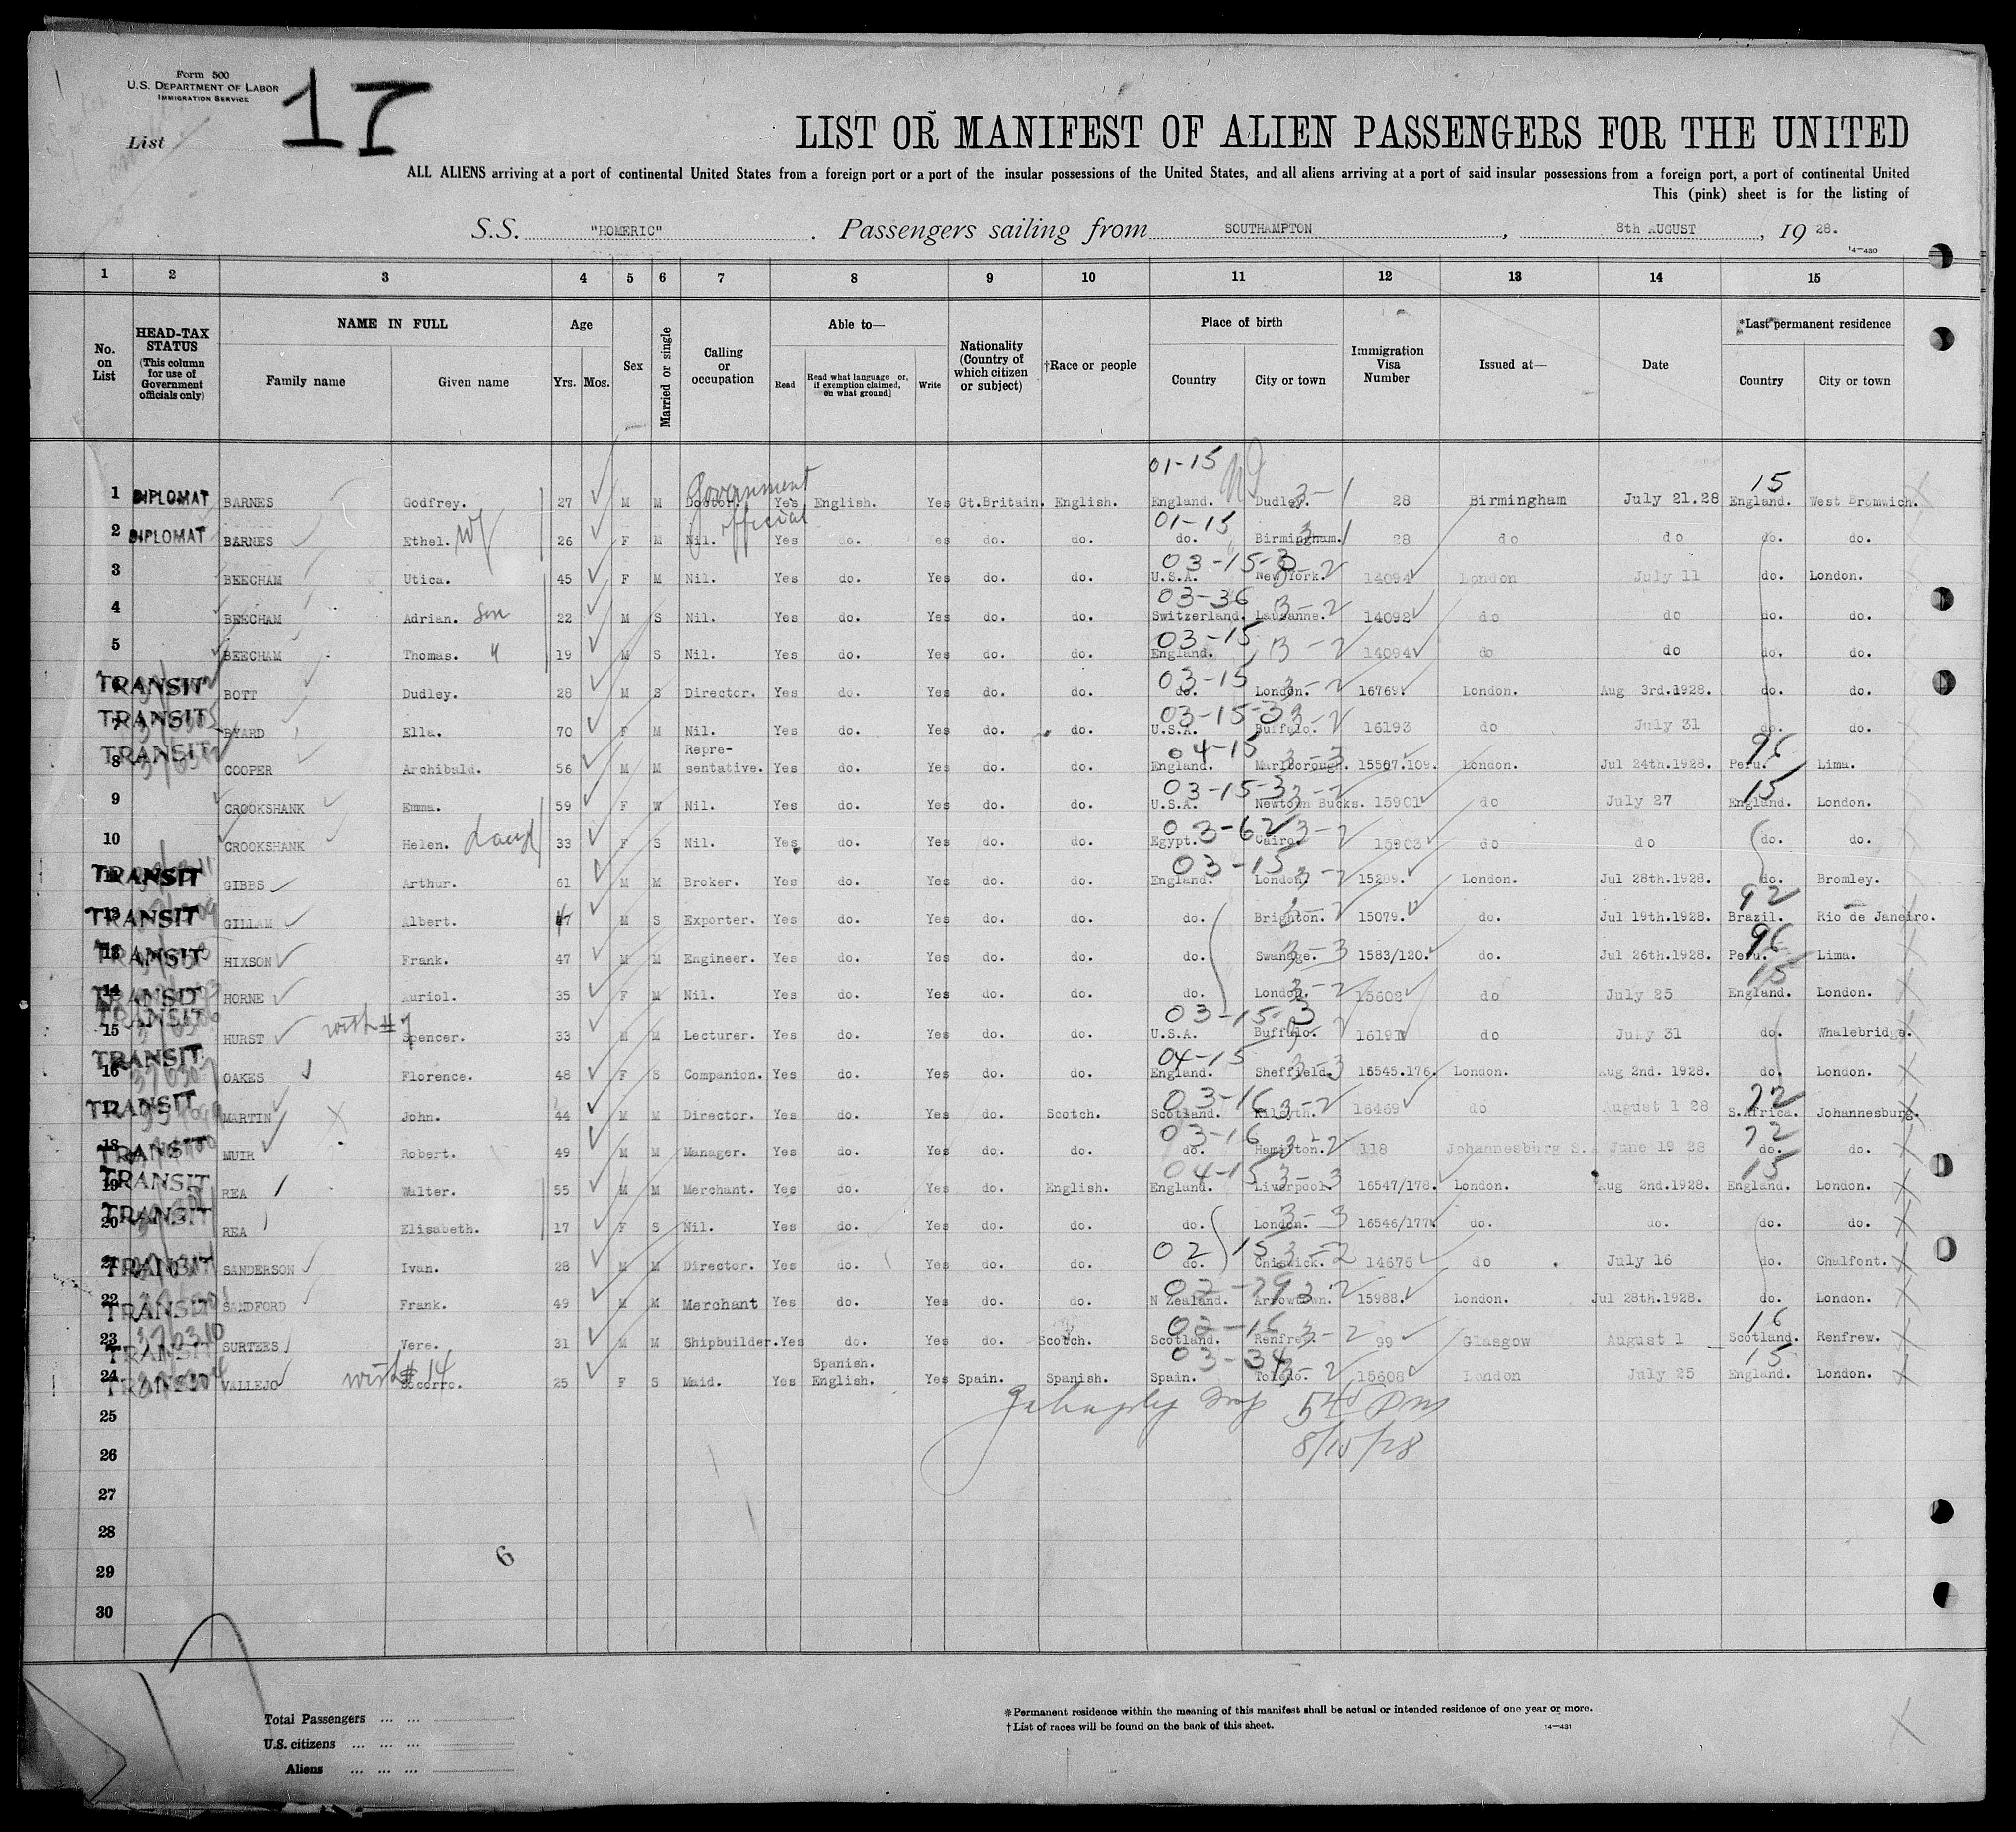 Form 500
U.S. DEPARTMENT OF LABOR
IMMIGRATION SERVICE
List
17
LIST OR MANIFEST OF ALIEN PASSENGERS FOR THE UNITED
ALL ALIENS arriving at a port of continental United States from a foreign port or a port of the insular possessions of the United States, and all aliens arriving at a port of said insular possessions from a foreign port, a port of continental United
This (pink) sheet is for the listing of
S.S. "HOMERIC". Passengers sailing from SOUTHAMPTON, 8th AUGUST, 19 28.
14-430
1 2 3 4 5 6 7 8 9 10 11 12 13 14 15
No. on List
HEAD-TAX STATUS (This column for use of Government officials only)
NAME IN FULL
Family name Given name
Age
Yrs. Mos.
Sex
Married or single
Calling or occupation
Able to—
Read Read what language or, if exemption claimed, on what ground] Write
Nationality (Country of which citizen or subject)
†Race or people
Place of birth
Country City or town
Immigration Visa Number
Issued at—
Date
*Last permanent residence
Country City or town
Government official
01-15 15
1 DIPLOMAT BARNES Godfrey. 27 M M Doctor. Yes English. Yes Gt.Britain. English. England. Dudley. 3-1 28 Birmingham July 21.28 England. West Bromwich.
01-15
2 DIPLOMAT BARNES Ethel. Wf 26 F M Nil. Yes do. Yes do. do. do. Birmingham. 3-1 28 do do do. do.
03-15-3
3 BEECHAM Utica. 45 F M Nil. Yes do. Yes do. do. U.S.A. New York. 3-2 14094 London July 11 do. London.
03-36
4 BEECHAM Adrian. Son 22 M S Nil. Yes do. Yes do. do. Switzerland. Lausanne. 3-2 14092 do do do. do.
03-15
5 BEECHAM Thomas. " 19 M S Nil. Yes do. Yes do. do. England. 3-2 14094 do do do. do.
03-15
6 TRANSIT BOTT Dudley. 28 M S Director. Yes do. Yes do. do. do. London. 3-2 16769. London. Aug 3rd.1928. do. do.
03-15-3
7 TRANSIT BYARD Ella. 70 F M Nil. Yes do. Yes do. do. U.S.A. Buffalo. 3-2 16193 do July 31 do. do.
04-15 96
8 TRANSIT COOPER Archibald. 56 M M Repre-sentative. Yes do. Yes do. do. England. Marlborough. 3-3 15507.109. London. Jul 24th.1928. Peru. Lima.
03-15-3 15
9 CROOKSHANK Emma. 59 F W Nil. Yes do. Yes do. do. U.S.A. Newtown Bucks. 3-2 15901 do July 27 England. London.
03-62
10 CROOKSHANK Helen. daug 33 F S Nil. Yes do. Yes do. do. Egypt. Cairo. 3-2 15903 do do do. do.
03-15
11 TRANSIT GIBBS Arthur. 61 M M Broker. Yes do. Yes do. do. England. London. 3-2 15289. London. Jul 28th.1928. do. Bromley.
92
12 TRANSIT GILLAM Albert. 47 M S Exporter. Yes do. Yes do. do. do. Brighton. 3-2 15079. do. Jul 19th.1928. Brazil. Rio de Janeiro.
96
13 TRANSIT HIXSON Frank. 47 M M Engineer. Yes do. Yes do. do. do. Swanage. 3-3 1583/120. do. Jul 26th.1928. Peru. Lima.
15
14 TRANSIT HORNE Auriol. 35 F M Nil. Yes do. Yes do. do. do. London. 3-2 15602 do July 25 England. London.
03-15-3
15 TRANSIT HURST with #7 Spencer. 33 M M Lecturer. Yes do. Yes do. do. U.S.A. Buffalo. 16191 do July 31 do. Whalebridge.
04-15
16 TRANSIT OAKES Florence. 48 F S Companion. Yes do. Yes do. do. England. Sheffield. 3-3 16545.176. London. Aug 2nd. 1928. do. London.
03-16 72
17 TRANSIT MARTIN John. 44 M M Director. Yes do. Yes do. Scotch. Scotland. Kilsyth. 3-2 16469 do August 1 28 S.Africa. Johannesburg.
03-16 72
18 TRANSIT MUIR Robert. 49 M M Manager. Yes do. Yes do. do. do. Hamilton. 3-2 118 Johannesburg S.A June 19 28 do. do.
04-15 15
19 TRANSIT REA Walter. 55 M M Merchant. Yes do. Yes do. English. England. Liverpool. 3-3 16547/178. London. Aug 2nd.1928. England. London.
20 TRANSIT REA Elisabeth. 17 F S Nil. Yes do. Yes do. do. do. London. 3-3 16546/177 do. do. do. do.
02 15
21 TRANSIT SANDERSON Ivan. 28 M M Director. Yes do. Yes do. do. do. Chiswick. 3-2 14675 do July 16 do. Chalfont.
02-79
22 TRANSIT SANDFORD Frank. 49 M M Merchant Yes do. Yes do. do. N Zealand. Arrowtown. 3-2 15988. London. Jul 28th.1928. do. London.
02-16 16
23 TRANSIT SURTEES Vere. 31 M M Shipbuilder. Yes do. Yes do. Scotch. Scotland. Renfrew. 3-2 99 Glasgow August 1 Scotland. Renfrew.
03-34 15
24 TRANSIT VALLEJO with #14 Socorro. 25 F S Maid. Yes Spanish. English. Yes Spain. Spanish. Spain. Toledo. 3-2 15608 London July 25 England. London.
25
5 45 PM
26
8/15/28
27
28
29
6
30
Total Passengers ... ...
U.S. citizens ... ... ...
Aliens ... ... ...
*Permanent residence within the meaning of this manifest shall be actual or intended residence of one year or more.
†List of races will be found on the back of this sheet.
14-431